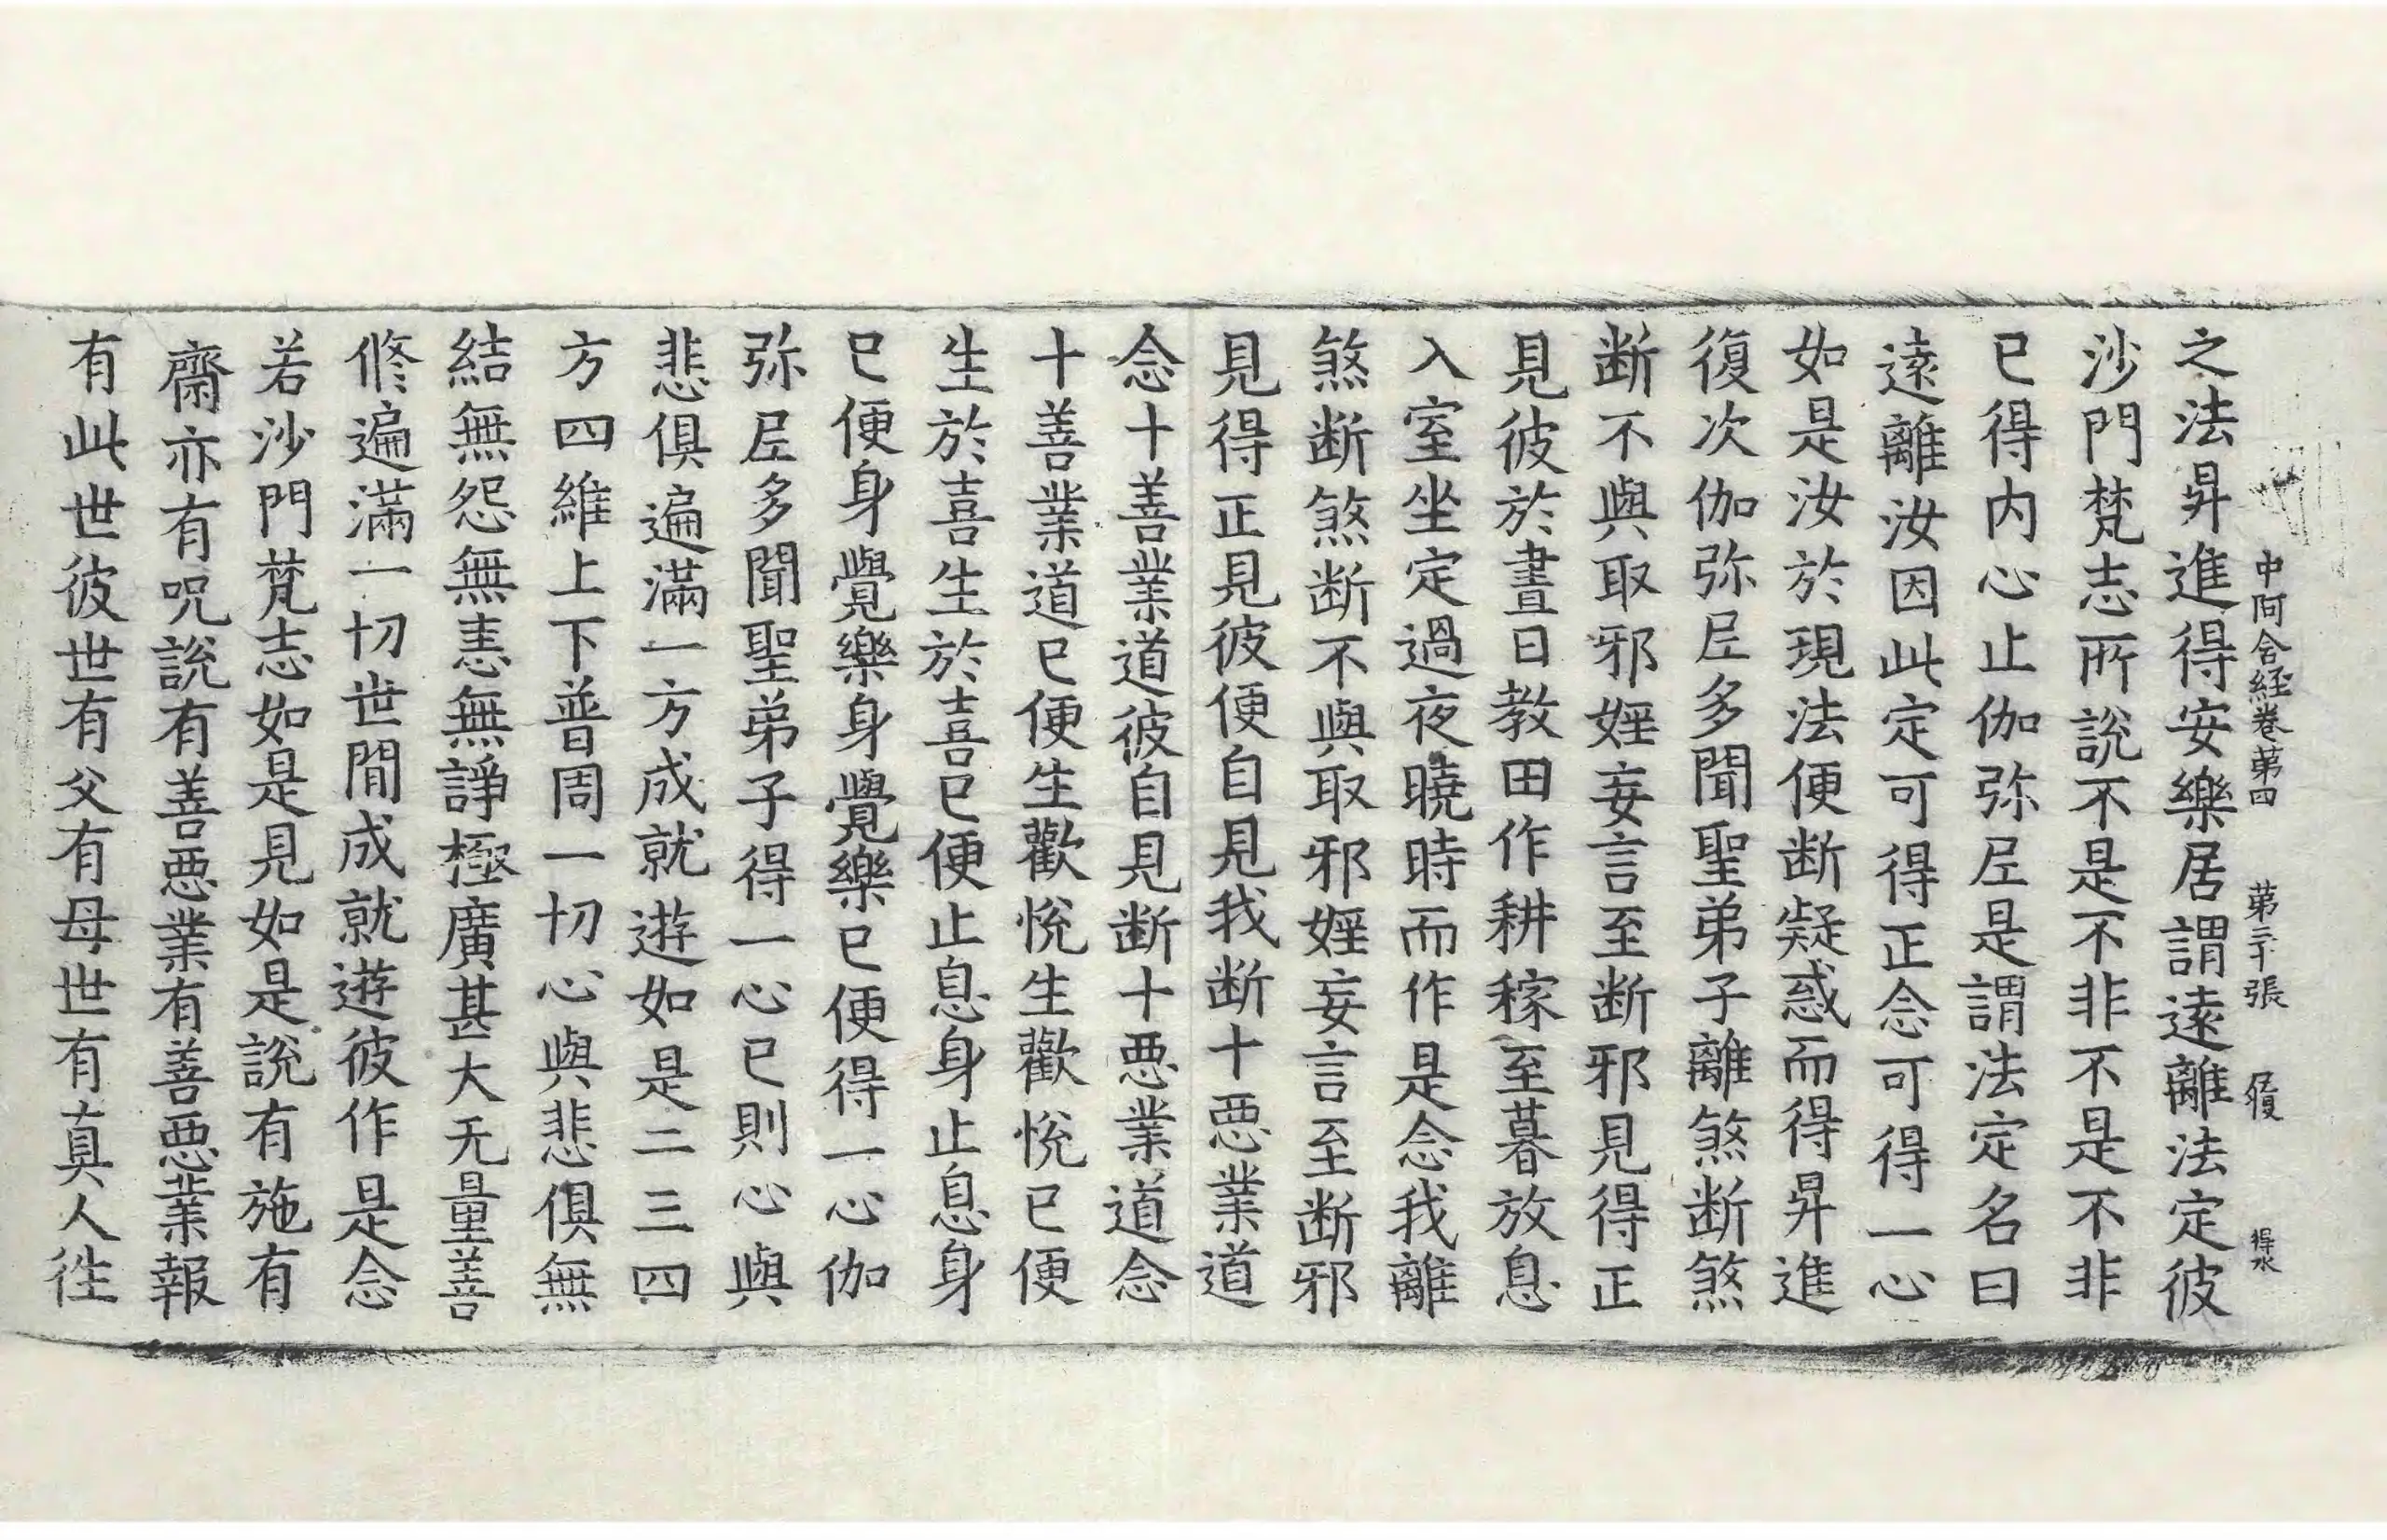 中阿含経卷第四 第三十張 履 得水
之法昇進得安樂居謂遠離法定彼
沙門梵志所說不是不非不是不非
已得内心止伽弥尼是謂法定名曰
遠離汝因此定可得正念可得一心
如是汝於現法便断疑惑而得昇進
復次伽弥尼多聞聖弟子離煞断煞
断不與取邪婬妄言至断邪見得正
見彼於晝日教田作耕稼至暮放息
入室坐定過夜曉時而作是念我離
煞断煞断不與取邪婬妄言至断邪
見得正見彼便自見我断十惡業道
念十善業道彼自見断十惡業道念
十善業道已便生歡悅生歡悅已便
生於喜生於喜已便止息身止息身
已便身覺樂身覺樂已便得一心伽
弥尼多聞聖弟子得一心已則心與
悲俱遍滿一方成就遊如是二三四
方四維上下普周一切心與悲俱無
結無怨無恚無諍極廣甚大无量善
修遍滿一切世閒成就遊彼作是念
若沙門梵志如是見如是說有施有
齋亦有呪說有善惡業有善惡業報
有此世彼世有父有母世有真人往